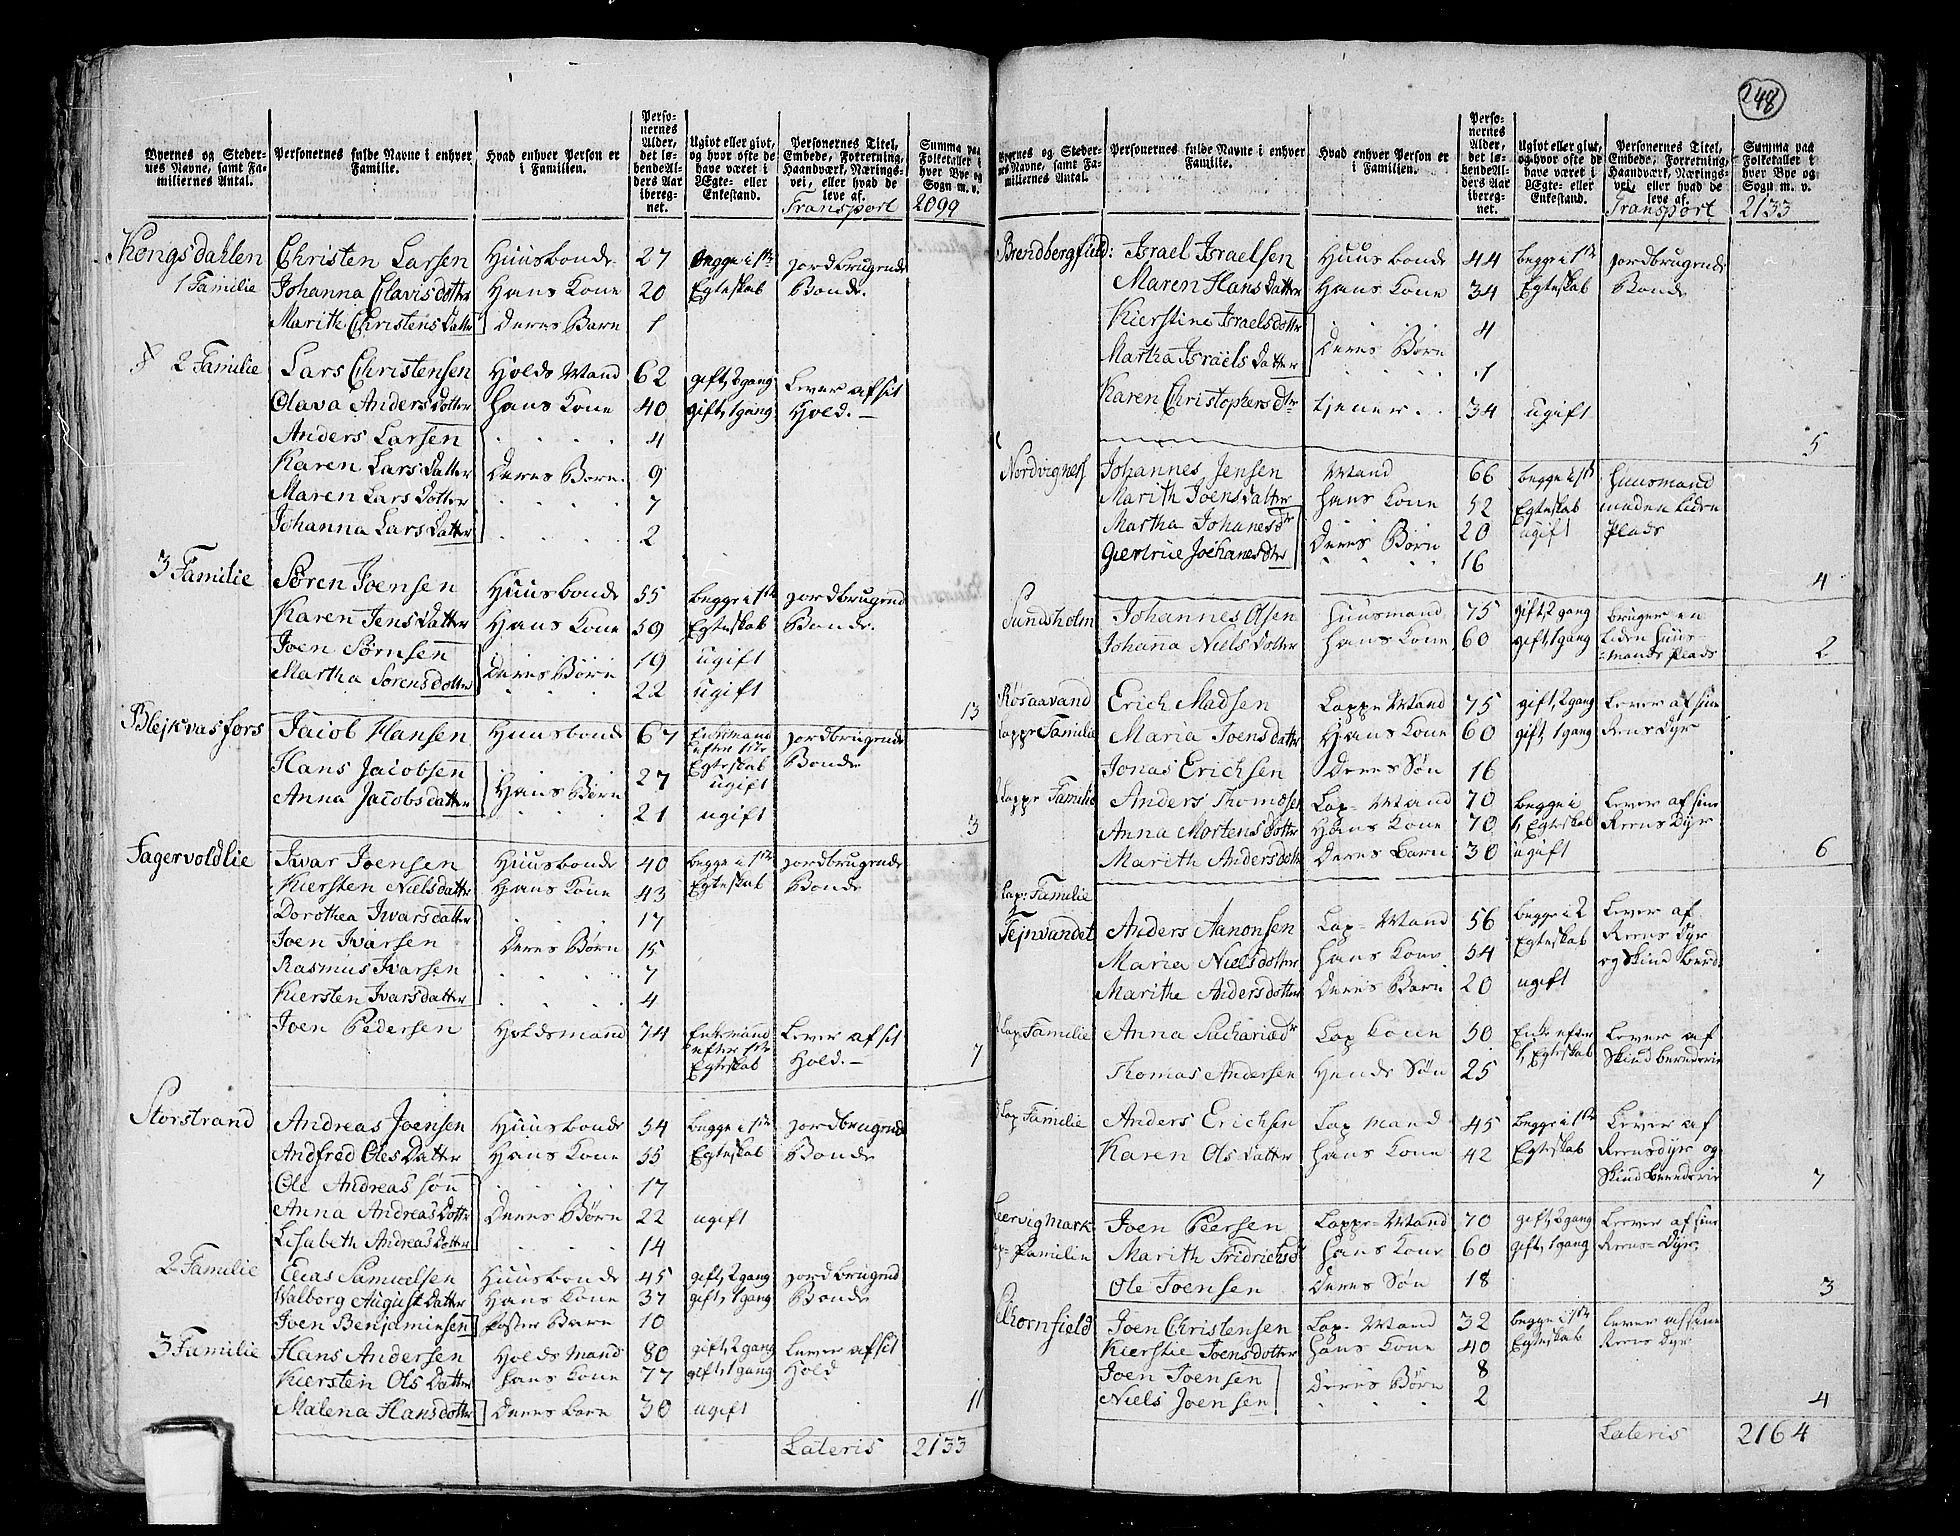 248
Byernes og Stedernes Navne, samt Familiernes Antal.
Personernes fulde Navne i enhver Familie.
Hvad enhver Person er i Familien.
Personernes Alder, det løbende Alders Aar iberegnet.
Ugivt eller givt, og hvor ofte de have været i Ægte- eller Enkestand.
Personernes Titel, Embede, Forretning, Haandværk, Næringsvei, eller hvad de leve af.
Summa paa Folketallet i hver Bye og Sogn m. v.
Transport 2099
Kongsdahlen Christen Larsen Huusbonde 27 begge i 1ste jordbrugende
1 Familie Johanna Olavisdotter Hans Kone 20 Egteskab Bonde.
Marith Christens Datter Deres Barn 1
2 Familie Lars Christensen Holds Mand 62 gift, 2 gang Lever af sit
Olava Anders Dotter hans Kone 40 gift, 1 gang Hold. —
Anders Larsen 4
Karen Lars Datter Deres Børn 9
Maren Lars Dotter 7
Johanna Lars Datter 2
3 Familie Sören Joensen Huusbonde 55 begge i 1ste jordbrugend
Karen Jens Datter Hans Kone 59 Egteskab Bonde.
Joen Sörnsen Deres Börn 19 ugift
Martha Sorensdotter 22 ugift
13
Blejkvasfors Jacob Hansen Huusbonde 67 Enkemand efter 1ste Egteskab jordbrugende Bonde
Hans Jacobsen Hans Börn 27 ugift
Anna Jacobsdatter 21 ugift
3
Fagervoldlie Ivar Joensen Huusbonde 40 begge i 1ste jordbrugende
Kiersten Nielsdatter Hans Kone 43 Egteskab Bonde
Dorothea Ivarsdatter 17
Joen Ivarsen Deres Børn 15
Rasmus Ivarsen 7
Kiersten Ivarsdatter 4
Joen Pedersen Holdsmand 74 Enkemand efter 1ste Egteskab Lever af sit Hold. —
7
Storstrand Andreas Joensen Huusbonde 54 begge i 1ste jordbrugend
Andfred Oles Datter Hans Kone 55 Egteskab Bonde
Ole Andreas søn 17
Anna Andreas Dotter Deres Børn 22 ugift
Lisabeth Andreas Dotter 14
2 Familie Elias Samuelsen Huusbonde 45 gift, 2 gang jordbrugend
Walborg August Datter Hans Kone 37 gift, 1 gang Bonde
Joen Benjaminsen foster Barn 10
3 Familie Hans Andersen Holds Mand 80 gift, 2 gang Lever af sit
Kiersten Ols Datter hans Kone 77 gift, 1 gang Hold
Malena Hansdotter Deres barn 30 ugift
11
Lateris 2133
Byernes og Stedernes Navne, samt Familiernes Antal.
Personernes fulde Navne i enhver Familie.
Hvad enhver Person er i Familien.
Personernes Alder, det løbende Alders Aar iberegnet.
Ugivt eller givt, og hvor ofte de have været i Ægte- eller Enkestand.
Personernes Titel, Embede, Forretning, Haandværk, Næringsvei, eller hvad de leve af.
Summa paa Folketallet i hver Bye og Sogn m. v.
Transport 2133
Brendbergfield: Israel Israelsen Huusbonde 44 begge i 1ste jordbrugende
Maren Hans Datter Hans Kone 34 Egteskab Bonde
Kierstine Israelsdotter 4
Martha Israels Datter Deres Børn 1
Karen Christophers Dtr tjener 34 ugift
5
Nordvignes Johannes Jensen Mand 66 begge i 1ste Huusmand
Marith Joensdatter hans Kone 52 Egteskab med en liden
Martha Johanes Dtr Deres Børn 20 ugift Plads
Giertrue Johanes Dter 16
4
Sundsholm Johannes Olsen Huusmand 75 gift, 2 gang bruger en
Johanna Niels Dotter hans Kone 60 gift, 1 gang liden Huus-
mands Plads
2
Røsaavand Erich Madsen Lappe Mand 75 gift, 2 gang Lever af sine
Lappe Familie Maria Joensdatter Hans Kone 60 gift, 1 gang Reens Dyr
Jonas Erichsen Deres Søn 16
Lappe Familie Anders Thomesen Lap- Mand 70 begge i Lever af sine
Anna Mortens Dotter Hans Kone 70 1, Egteskab Reens Dyr
Marith Andersdotter Deres Barn 30 ugift
6
Lap: Familie
Tejnvandet Anders Aanonsen Lap- Mand 56 begge i 2 Lever af
Maria Nielsdotter hans Kone 54 Egteskab Reens Dyr
Marithe Andersdotter Deres Barn 20 ugift og Skind bered.
Lap Familie Anna Sachariæd Lap Kone 50 Enke efter Lever af
1, Egteskab Skind berederie
Thomas Andersen Hends Søn 25
Lap Familie Anders Erichsen Lap mand 45 begge i 1ste Lever af
Karen Ols Datter hans Kone 42 Egteskab Reensdyr og
Skind berederie
7
Joen Peersen Lappe-Mand 70 gift, 2 gang Leever af sine
Lap- Familie Marith Fridrichsdr hans Kone 60 gift, 1 gang Reens-Dyr,
Ole Joensen Deres Søn 18
3
Joen Christensen Lap- Mand 32 begge i 1ste Lever af sine
Kierstie Joensdotter hans Kone 40 Egteskab Reens Dyr
Joen Joensen Deres Børn 8
Niels Joensen 2
4
Lateris 2164